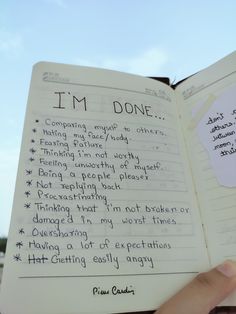 I'M DONE...
* Comparing myself to others.
* Hating my face/body.
* Fearing failure
* Thinking i'm not worthy
* Feeling unworthy of myself.
* Being a people pleaser
* Not replying back.
* Procrastinating.
* Thinking that i'm not broken or
damaged in my worst times
* Oversharing
* Having a lot of expectations
* Hat Getting easily angry
Pierre Cardin
don't
others